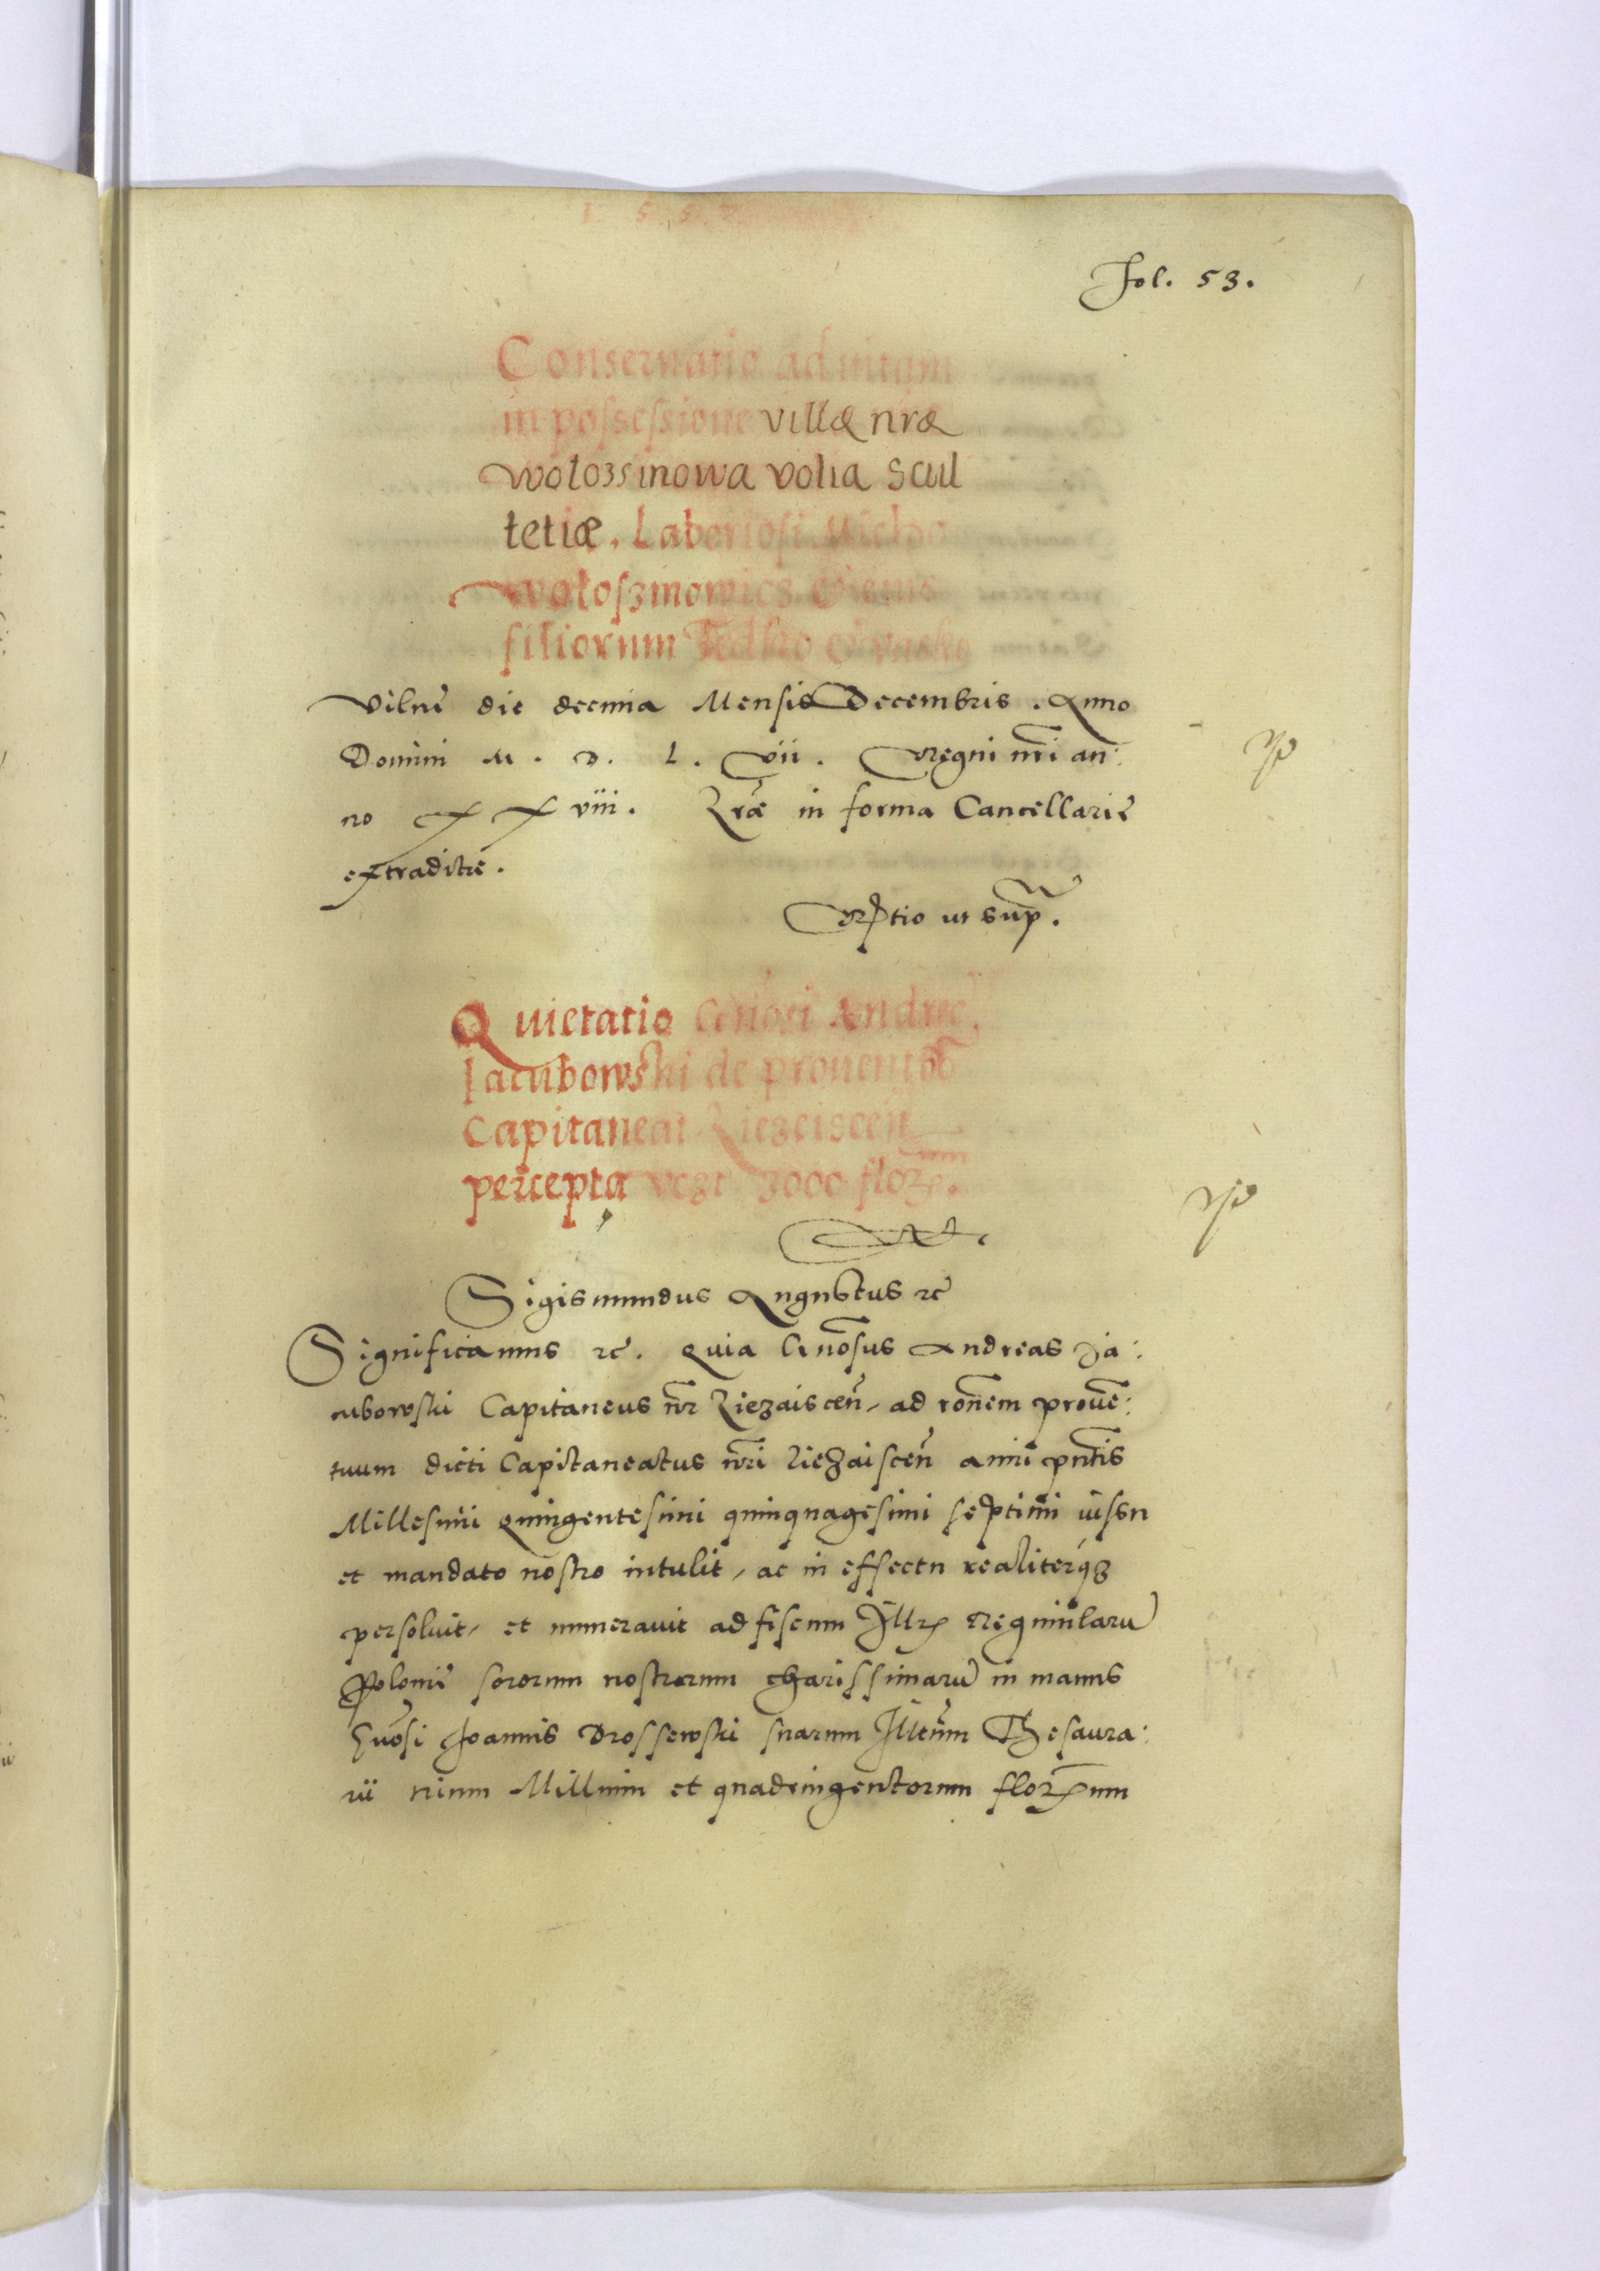 1 5 5 7
Fol. 53.
Conseruatio ad uitam
in possessione villæ nræ
wolozsinowa volia scul
tetiæ. Laboriosi Michno
woloszinowicz eiusque
filiorum Fedko et Vasko
Vilnę die decima Mensis Decembris. Anno
Domini M. D. L. vii. Regni nri an:
no X X viii. Lræ in forma Cancellarię
extraditæ.
Rptio ut supr.
Quietatio Gnosi Andreę
Iacubowski de prouentibus
Capitaneat Liezaiscen
percepta vczt 3000 flor.
Sigismundus Augustus rc
Significamus rc. Quia Gnosus Andreas Ja:
cubowski Capitaneus nr Liezaiscen, ad ronem prouen:
tuum dicti Capitaneatus nri Liezaiscen anni pntis
Millesimi Quingentesimi quinquagesimi septimi iussu
et mandato nostro intulit, ac in effectu realiterq3
persoluit, et numerauit ad fiscum Illr Reginularu
Polonię sororum nostrarum charissimaru in manus
Gnosi Joannis Drossewski suarum Illtum Thesaura:
rii trium Millium et quadringentorum florenum